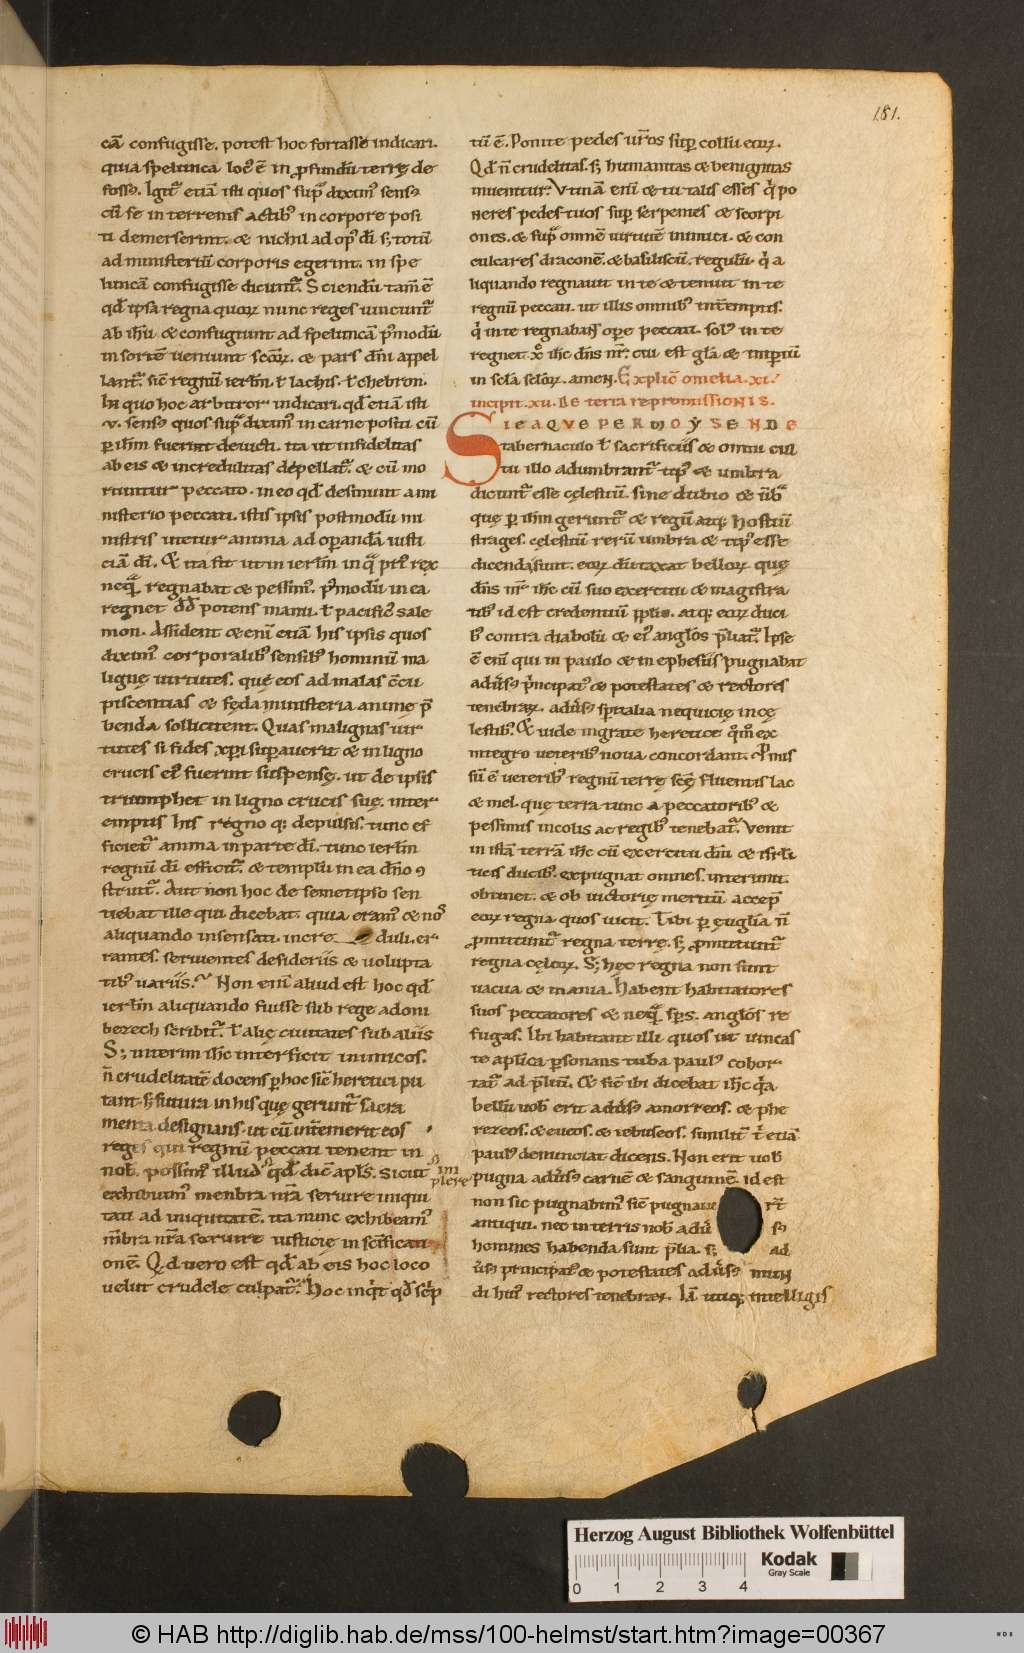 181.
cā confugisse. potest hoc fortasse indicari.
quia spelunca loc᷒ ē in ꝓfundū terrę de
fossus. Igit᷑ etiā isti quos sup᷑ diximus sensus
cū se in terrenis actib᷒ in corpore posi
ti demerserint. & nichil ad op᷒ dī s; totū
ad ministeriū corporis egerint. in spe
luncā confugisse dicunt᷑. Sciendū tam̄ ē
qd̄ ipsa regna quoꝝ nunc reges vincunt᷑
ab ih̄u & confugiunt ad speluncā p̄modū
in sortē ueniunt sc̄oꝝ. & pars dn̄i appel
lant᷑. sic̄ regnū ierl̄m ł lachis. ł chebron.
In quo hoc arbitror indicari. qd̄ etiā isti
.v. sensus quos sup᷑ diximus in carne positi cū
ꝑ ih̄m fuerint deuicti. ita ut infidelitas
ab eis & incredulitas depellat᷑. & cū mo
riuntur peccato. in eo qd̄ desinunt a mi
nisterio peccati. istis ipsis postmodū mi
nistris utetur anima ad operandā iusti
ciā dī. & ita fit ut in ierl̄m in qua pri᷒ rex
neq̄ regnabat & pessim᷒. p᷒modū in ea
regnet dd̄ potens manu. ł pacific᷒ salo
mon. Assident & enī etiā his ipsis quos
dixim᷒ corporalib᷒ sensib᷒ hominū ma
lignę uirtutes. quę eos ad malas c̄cu
piscentias & fęda ministeria animę p̄
benda sollicitent. Quas malignas uir
tutes si fides xpi superauerit & in ligno
crucis eius fuerint suspensę. ut de ipsis
triumphet in ligno crucis suę. inter
emptis his regno q; depulsis. tunc ef
ficiet᷑ anima in parte dī. tunc ierl̄m
regnū dī efficit᷑. & templū in ea dn̄o ꝯ
struit᷑. Aut non hoc de semetipso sen
tiebat ille qui dicebat. quia eram᷒ & nos
aliquando insensati. incre duli. er
rantes. seruientes desideriis & uolupta
tib᷒ uariis. Non enī aliud est hoc qd̄
ierl̄m aliquando fuisse sub rege adoni
bezech scribit᷑. ł alię ciuitates sub aliis
S; interim ih̄c interficit inimicos.
n̄ crudelitatē docens ꝑ hoc sic̄ heretici pu
tant. s; futura in his quę gerunt᷑ sacra
menta designans. ut cū int̄emerit eos
reges qui regnū peccati tenent in
nob̄. possim᷒ illud qd̄ dic̄ apl̄s. Sicut
im
plere
exhibuim᷒ menbra nr̄a seruire iniqui
tati ad iniquitatē. ita nunc exhibeam᷒
m̄bra nr̄a seruire iusticię in sc̄ificati
onē. Qd̄ uero est qd̄ ab eis hoc loco
uelut crudele culpat᷑. Hoc inq̇t qd̄ sc̄p
tū ē. Ponite pedes ur̄os sup collū eoꝝ.
Qd̄ n̄ crudelitas. s; humanitas & benignitas
inuenitur. Vtinā enī & tu talis esses q̇ po
neres pedes tuos sup serpentes & scorpi
ones. & sup᷑ omnē uirtutē inimici. & con
culcares draconē. & basiliscū. regulū. q̇ a
liquando regnauit in te & tenuit in te
regnū peccati. ut illis omnib᷒ int̄emptis.
q̇ in te regnabant ope peccati. sol᷒ in te
regnet xp̄c ih̄c dn̄s nr̄. cui est gl̄a & imperiū
in scl̄a scl̄oꝝ. amen. Explic̄ omelia .xi.
incipit .xv. De terra repromissionis.
SIEAQVE PER MOYSEN DE
tabernaculo ł sacrificiis & omni cul
tu illo adumbrant᷑ tip᷒ & umbra
dicunt᷑ esse cęlestiū. sine dubio & ūba
quę ꝑ ih̄m gerunt᷑ & regū atq; hostiū
strages. cęlestiū rerū umbra & tip᷒ esse
dicenda sunt. eoꝝ dūtaxat belloꝝ quę
dn̄s nr̄ ih̄c cū suo exercitu & magistra
tib᷒ id est credentiū pp̄lis. atq; eoꝝ duci
b᷒ contra diabolū & ei᷒ angl̄os p̄liat᷑. Ipse
ē enī qui in paulo & in ephesiis pugnabat
aduersus p̄ncipat᷒ & potestates & rectores
tenebraꝝ. aduersus sp̄italia nequicię in cę
lestib᷒. & uide ingrate heretice q̄m ex
integro ueterib᷒ noua concordant. P̄mis
sū ē ueterib᷒ regnū terrę sc̄ę fluentis lac
& mel. quę terra tunc a peccatorib᷒ &
pessimis incolis ac regib᷒ tenebat᷑. Venit
in istā terrā ih̄c cū exercitu dn̄i & isrl̄i
ticis ducib᷒. expugnat omnes. interimit.
obtinet. & ob uictorię meritū accep̄
eoꝝ regna quos uicit. Tibi ꝑ ęuglīa n̄
ꝓmittunt᷑ regna terrę. s; ꝓmittunt᷑
regna cęloꝝ. S; hęc regna non sunt
uacua & inania. Habent habitatores
suos peccatores & neq᷑ sp̄s. anglōs re
fugas. Ibi habitant illi quos ut uincas
te aplīca ꝑsonans tuba paul᷒ cohor
tat᷑ ad p̄liū. & sic̄ ibi dicebat ih̄c q̇a
bellū uob̄ erit aduersus amorreos. & phe
rezeos. & eueos. & iebuseos. similit̄ & etiā
paul᷒ denunciat dicens. Non erit uob̄
pugna aduersus carnē & sanguinē. id est
non sic pugnabim᷒ sic̄ pugnaue rt̄
antiqui. nec in terris nob̄ adū s;
homines habenda sunt p̄lia. s; ad
uersus principatus & potestates aduersus mun
di hui᷒ rectores tenebraꝝ. Iā utiq; intelligis
Herzog August Bibliothek Wolfenbüttel
0 1 2 3 4
Kodak
Gray Scale
© HAB http://diglib.hab.de/mss/100-helmst/start.htm?image=00367